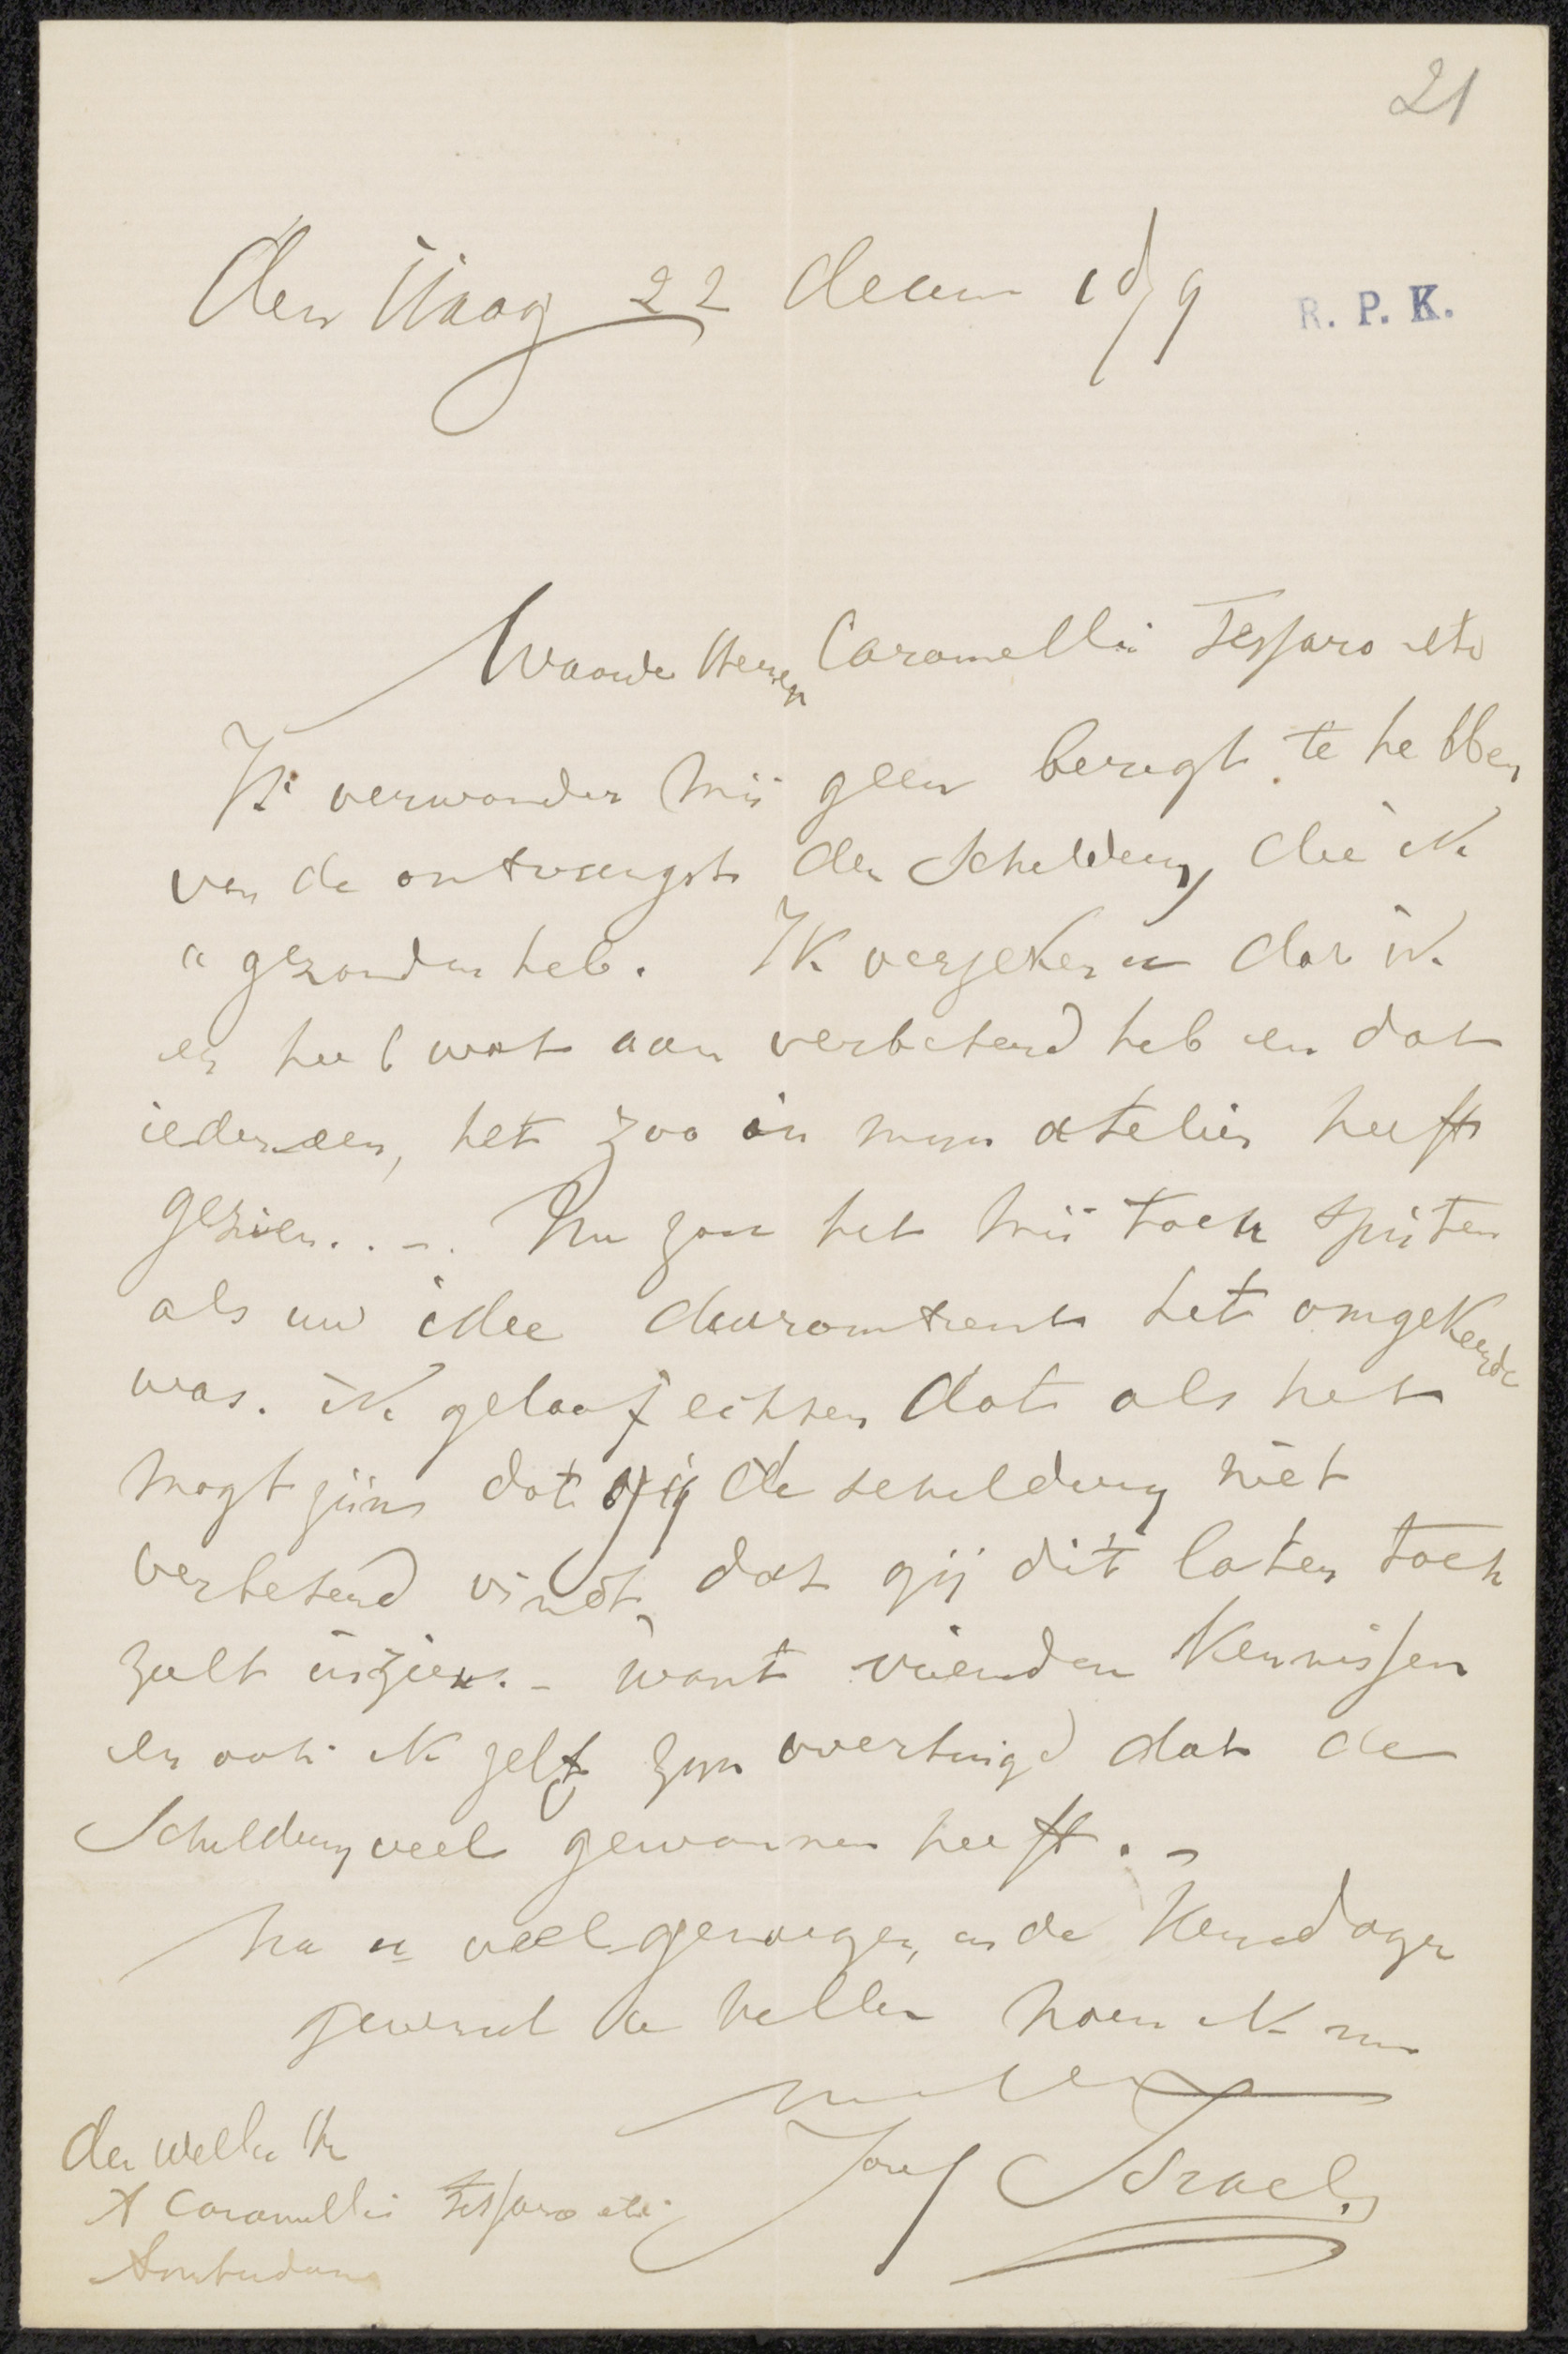 21
den Haag 22 decem
R. P. K.
Waarde Heeren Caramelli Tessaro etc
Ik verwonder mij geen berigt te hebben
van de ontvangst der Schildery die ik
u gezonden heb. Ik verzeker u dat ik
er heel wat aan verbeterd heb en dat
iedereen, het zoo in myn atelier heeft
gezien. . - . Nu zou het mij toch spijten
als uw idee daaromtrent het omgekeerde
was. ik geloof echter dat als het
mogt zijn dat gij de schildery niet
verbeterd vindt, dat gij dit later toch
zult inzien. - want vrienden kennissen
en ook ik zelf zyn overtuigd dat de
Schildery veel gewonnen heeft. -
Na u veel genoegen in de Kersdagen
gewenscht te hebben noem ik mij
Jozef Israels
den Welled Hr
A Caramelli Tessaro etc
Amsterdam